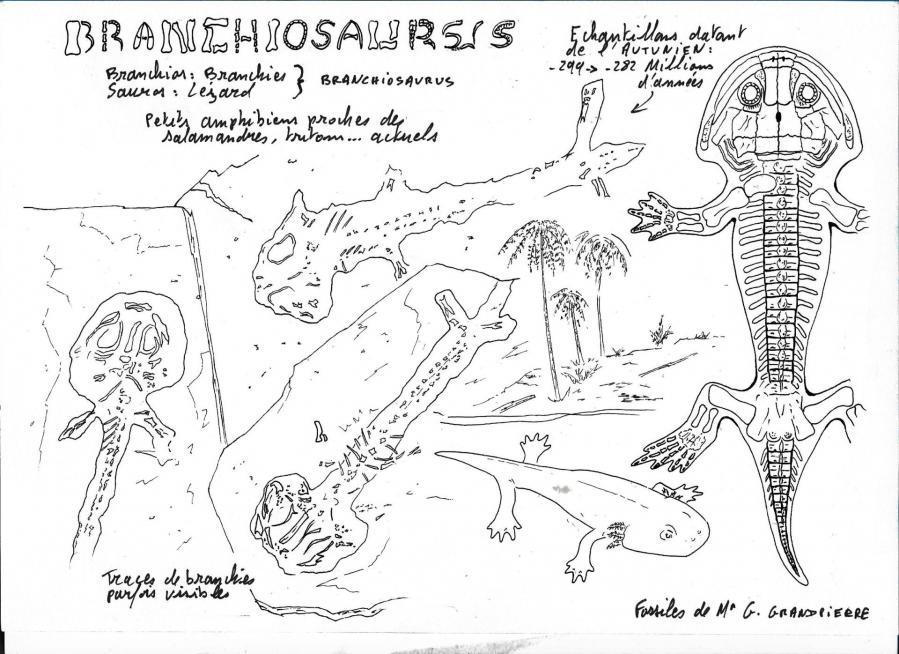 BRANCHIOSAURUS
Branchios: Branchies } BRANCHIOSAURUS
Sauros: Lézard
Petits amphibiens proches des
salamandres, tritons... actuels
Echantillons datant
de l'AUTUNIEN:
-299 → -282 Millions
d'années
Traces de branchies
parfois visibles
Fossiles de Mr G. GRANDPIERRE